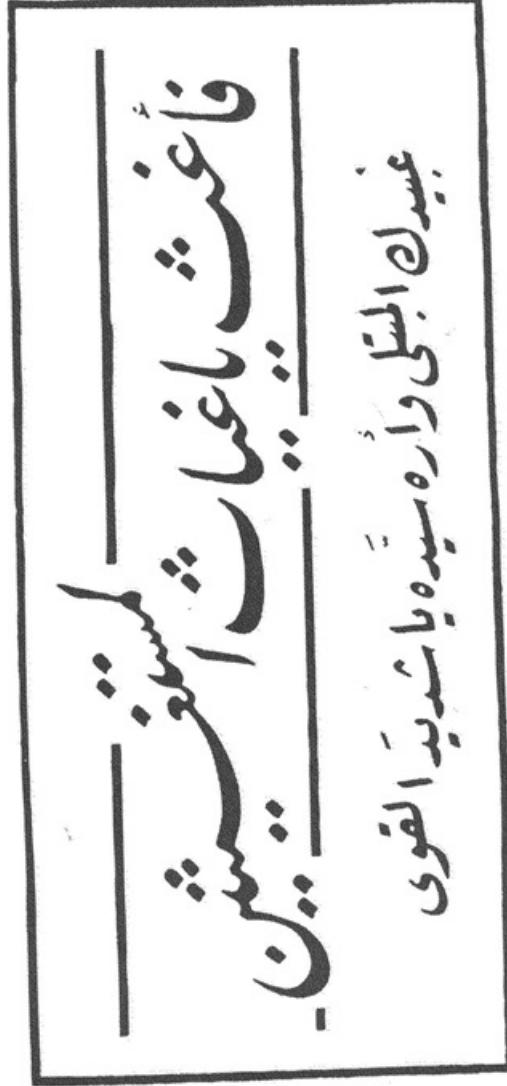 فأغث يا غياث المستغيثين
عبيدك المبتلى وأره سيّده يا شديدَ القوى